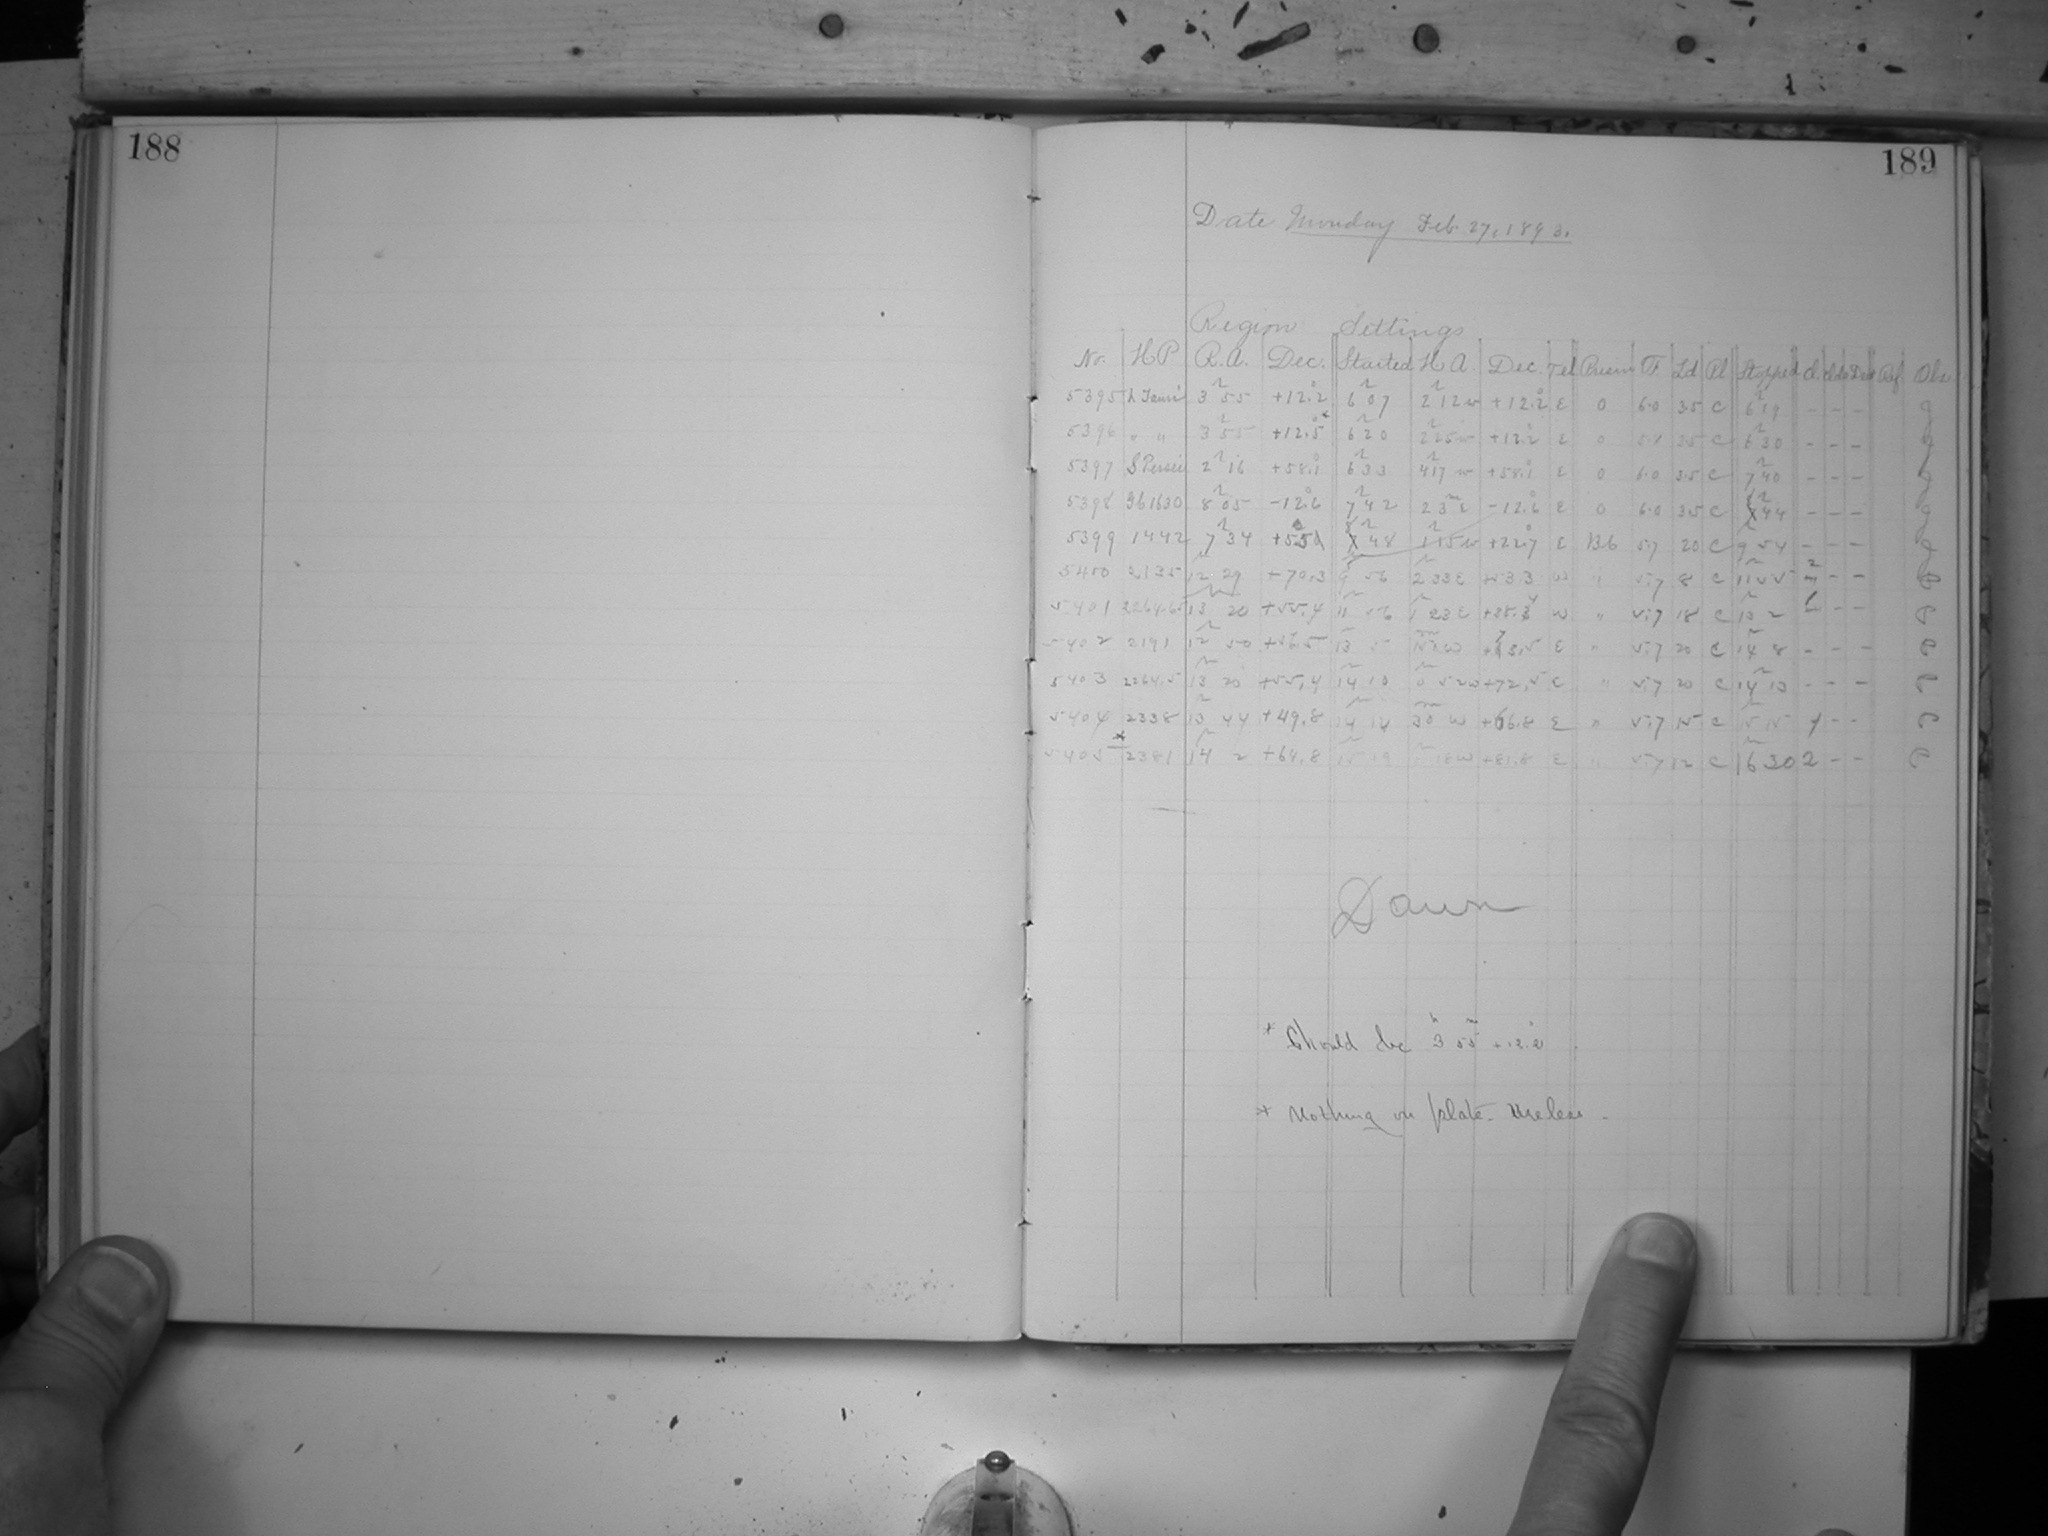 188
189
Date Monday Feb. 27, 1893.
Region Settings
No. H P R.A. Dec. Started H A. Dec. Tel Prism F Ld Pl Stopped Cl. Obs.
5395 λ Tauri 3 55 +12.2 6 07 2 12 w +12.2 E 0 6.0 35 C 6 19 - - - g
5396 " " 3 55 +12.5* 6 20 2 25 w +12.2 E 0 5.8 35 C 6 30 - - - g
5397 S Persei 2 16 +58.1 6 33 4 17 w +58.1 E 0 6.0 35 C 7 40 - - - g
5398 Gb 1630 8 05 -12.6 7 42 23 E -12.6 E 0 6.0 35 C 44 - - - g
5399 1442 7 34 48 1 15 w +22.7 E 13.6 5.7 20 C 9 54 - - - g
5400 2135 12 29 +70.3 9 56 2 33 E w " 5.7 8 C 11 55 - -
5401 13 20 +55.4 11 56 1 23 E w " 5.7 18 C 13 2 - -
5402 2191 12 50 +56.5 13 5 15 w E " 5.7 20 C 14 8 - - -
5403 2264.5 13 20 +55.4 14 10 0 52 w +72.5 E " 5.7 20 C 14 13 - - -
5404 2338 13 44 +49.8 14 14 30 w E " 5.7 15 C 15 15 - -
5405 * 2381 14 2 +64.8 w +81.8 E " 5.7 12 C 16 30 2 - -
Dawn
* Should be 3h 55m +12.2
* Nothing on plate. Useless.